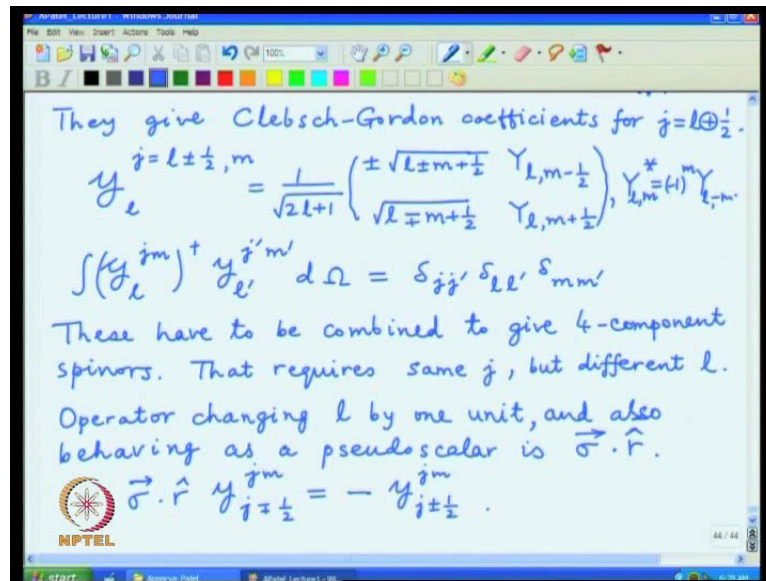 APatel_Lecture1 - Windows Journal
File Edit View Insert Actions Tools Help
100%
B I
They give Clebsch-Gordon coefficients for j=l⊕1/2.
y_l^{j=l±1/2,m} = 1/√(2l+1) ( ±√(l±m+1/2) Y_{l,m-1/2} ; √(l∓m+1/2) Y_{l,m+1/2} ), Y*_{l,m} = (-1)^m Y_{l,-m}.
∫(y_l^{jm})† y_{l'}^{j'm'} dΩ = δ_{jj'} δ_{ll'} δ_{mm'}
These have to be combined to give 4-component
spinors. That requires same j, but different l.
Operator changing l by one unit, and also
behaving as a pseudoscalar is σ⃗·r̂.
σ⃗·r̂ y_{j∓1/2}^{jm} = - y_{j±1/2}^{jm}.
NPTEL
44 / 44
start
Apoorva Patel
APatel_Lecture1 - Wi...
6:29 AM